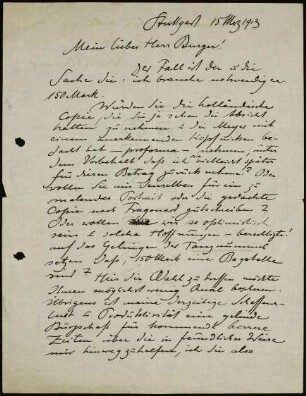 Stuttgart. 15 März 1913
Mein lieber Herr Burger!
Der Fall ist der u die
Sache die: ich brauche notwendig ca.
150 Mark.
Würden Sie die holländische
Copie, die Sie ja schon die Absicht
hatten zu nehmen u die Meyer mit
einem anerkennenden
dacht hat – proforma – nehmen, unter
dem Vorbehalt dass ich's später
für diesen Betrag zurück nehme? Oder
wollen Sie denselben für ein zu
malendes Portrait oder die gedachte
Copie nach Fragonard gutschreiben?
Oder wollen Sie so optimistisch
sein u solche Hoffnungen – berechtigte!
auf das Gelingen der Tanznummer
setzen dass, 150 Mark eine Bagatelle
sind? Hier die Wahl zu treffen möchte
Ihnen möglichst wenig Qual bereiten.
Übrigens ist meine derzeitige Schaffens-
lust u Produktivität eine gesunde
Bürgschaft für kommende bessere
Zeiten über die in freundlicher Weise
mir hinwegzuhelfen, ich Sie also